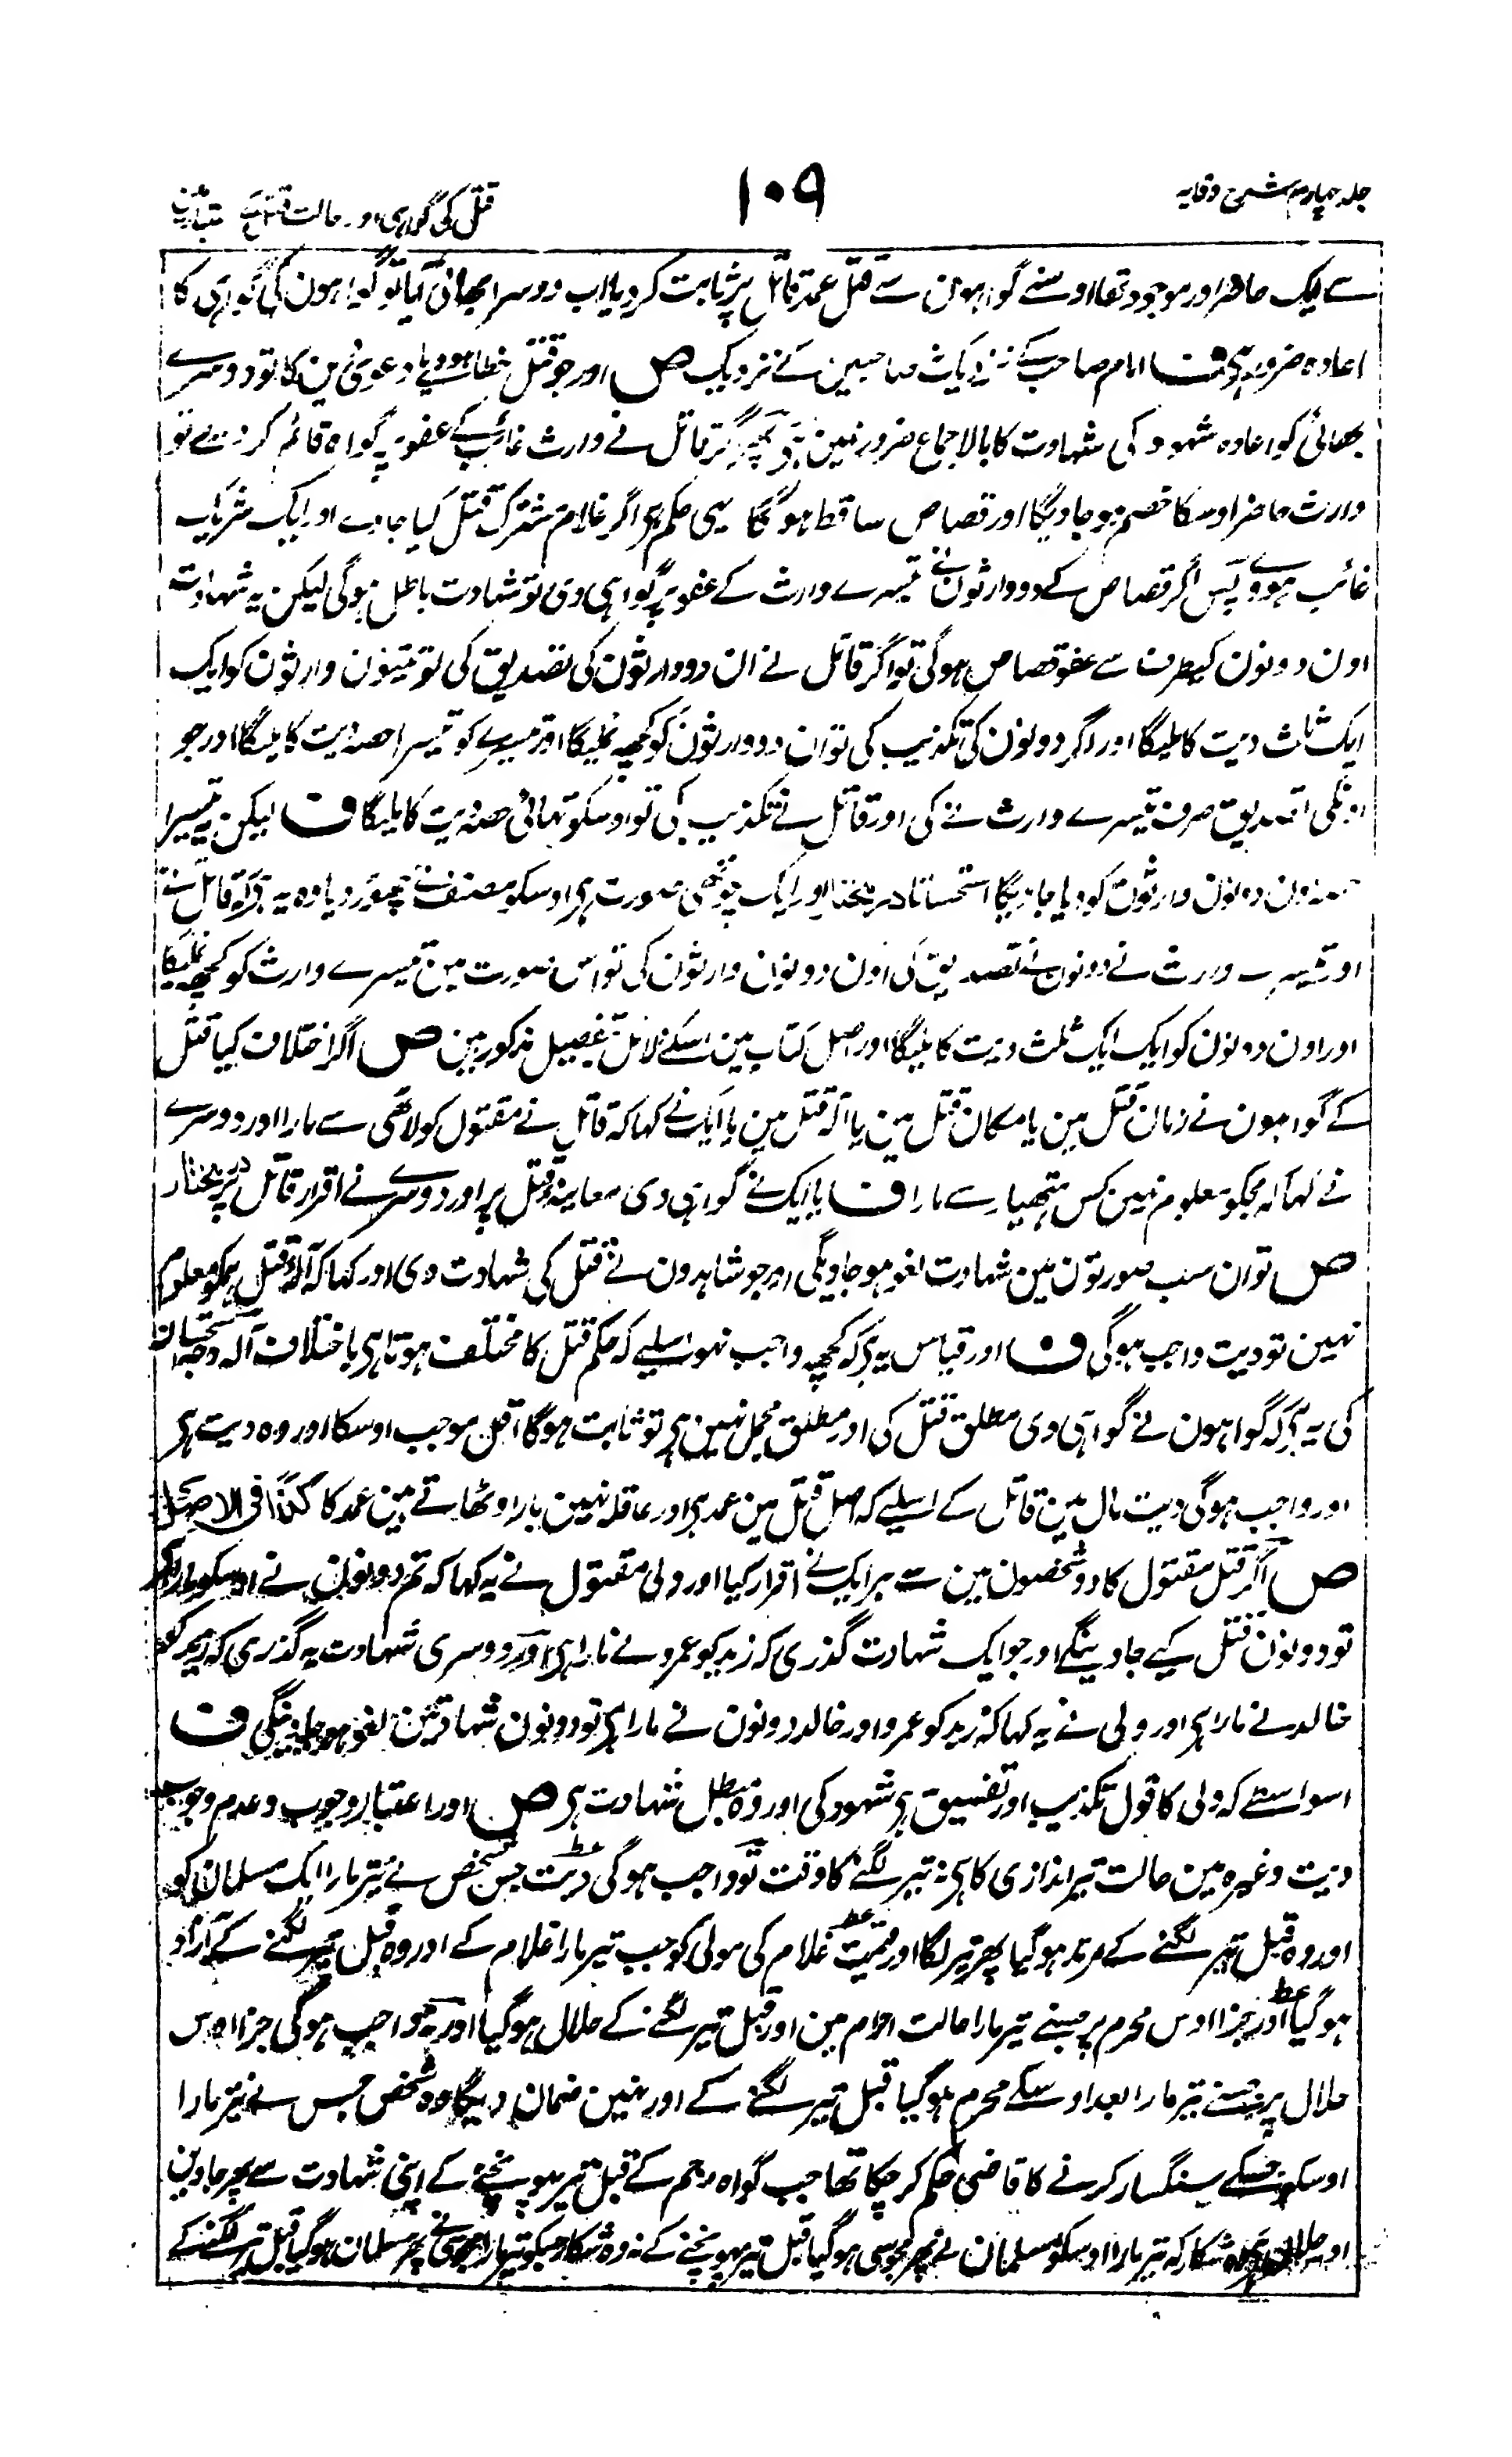 جلد چہارم شرح وقایہ
۱۰۹
قتل کی گواہی اور حالت قتل کے
سے ایک حاضر اور موجود تھا اوسنے گواہون سے قتل عمد قاتل پر ثابت کردیا اب دوسرا بھائی آیا تو گواہون کی گواہی کا
اعادہ ضرور ہی ف امام صاحب کے نزدیک صاحبین کے نزدیک ص اور جو قتل خطا ہووے یا دعوی دین کا تو دوسرے
بھائی کو اعادہ شہود کی شہادت کا بالاجماع ضرور نہین پھر اگر قاتل نے وارث غائب کے عفو پر گواہ قائم کردیے تو
وارث حاضر اوسکا خصم ہوجاویگا اور قصاص ساقط ہوگا یہی حکم ہی اگر غلام مشترک قتل کیا جاوے اور ایک شریک
غائب ہووے پس اگر قصاص کے دو وارثون نے تیسرے وارث کے عفو پر گواہی دی تو شہادت باطل ہوگی لیکن یہ شہادت
اون دونون کیطرف سے عفو قصاص ہوگی تو اگر قاتل نے ان دو وارثون کی تصدیق کی تو تینون وارثون کو ایک
ایک ثلث دیت کا ملیگا اور اگر دونون کی تکذیب کی تو ان دو وارثون کو کچھ نملیگا اور تیسرے کو تیسرا حصہ دیت کا ملیگا اور جو
اونکی تصدیق صرف تیسرے وارث نے کی اور قاتل نے تکذیب کی تو اوسکو تہائی حصہ دیت کا ملیگا ف لیکن یہ تیسرا
حصہ اون دونون وارثون کو دیا جاویگا استحسانا درمختار اور ایک چوتھی صورت ہی اوسکو مصنف نے چھوڑ دیا وہ یہ ہی کہ قاتل نے
اور تیسرے وارث نے دونون نے تصدیق کی اون دونون وارثون کی تو اس صورت مین تیسرے وارث کو کچھ نملیگا
اور اون دونون کو ایک ایک ثلث دیت کا ملیگا اور اصل کتاب مین اسکے دلائل بتفصیل مذکور ہین ص اگر اختلاف کیا قتل
کے گواہون نے زمان قتل مین یا مکان قتل مین یا آلہ قتل مین یا ایک نے کہا کہ قاتل نے مقتول کو لاٹھی سے مارا اور دوسرے
نے کہا کہ مجکو معلوم نہین کس ہتھیار سے مارا ف یا ایک نے گواہی دی معاینہ قتل پر اور دوسرے نے اقرار قاتل پر درمختار
ص تو ان سب صورتون مین شہادت لغو ہوجاویگی اور جو شاہدون نے قتل کی شہادت دی اور کہا کہ آلہ قتل ہمکو معلوم
نہین تو دیت واجب ہوگی ف اور قیاس یہ ہی کہ کچھ واجب نہو اسلیے کہ حکم قتل کا مختلف ہوتا ہی باختلاف آلہ وجہ استحسان
کی یہ ہی کہ گواہون نے گواہی دی مطلق قتل کی اور مطلق مجمل نہین ہی تو ثابت ہوگا اقل موجب اوسکا اور وہ دیت ہی
اور واجب ہوگی دیت مال مین قاتل کے اسلیے کہ اصل قتل مین عمد ہی اور عاقلہ نہین بار اوٹھاتے ہین عمد کا کذا فی الاصل
ص اگر قتل مقتول کا دو شخصون مین سے ہر ایک نے اقرار کیا اور ولی مقتول نے یہ کہا کہ تم دونون نے اوسکو مارا ہی
تو دونون قتل کیے جاوینگے اور جو ایک شہادت گذری کہ زید کو عمرو نے مارا ہی اور دوسری شہادت یہ گذری کہ زید کو
خالد نے مارا ہی اور ولی نے یہ کہا کہ زید کو عمرو اور خالد دونون نے مارا ہی تو دونون شہادتین لغو ہوجاوینگی ف
اسواسطے کہ ولی کا قول تکذیب اور تفسیق ہی شہود کی اور وہ مبطل شہادت ہی ص اور اعتبار وجوب و عدم وجوب
دیت وغیرہ مین حالت تیراندازی کا ہی نہ تیر لگنے کا وقت تو واجب ہوگی دیت جس شخص نے تیر مارا ایک مسلمان کو
اور وہ قبل تیر لگنے کے مرتد ہوگیا پھر تیر لگا اور قیمت غلام کی مولی کو جب تیر مارا غلام کے اور وہ قبل تیر لگنے کے آزاد
ہوگیا اور جزا اوس محرم پر جسنے تیر مارا حالت احرام مین اور قبل تیر لگنے کے حلال ہوگیا اور نہ واجب ہوگی جزا اوس
حلال پر جسنے تیر مارا بعد اوسکے محرم ہوگیا قبل تیر لگنے کے اور نہین ضمان دیگا وہ شخص جس نے تیر مارا
اوسکو جسکے سنگسار کرنے کا قاضی حکم کرچکا تھا جب گواہ رجم کے قبل تیر پہونچنے کے اپنی شہادت سے پھر جاوین
اور حلال ہی وہ شکار کہ تیر مارا اوسکو مسلمان نے پھر مجوسی ہوگیا قبل تیر پہونچنے کے نہ وہ شکار جسکو تیر مارا مجوسی نے پھر مسلمان ہوگیا قبل تیر لگنے کے